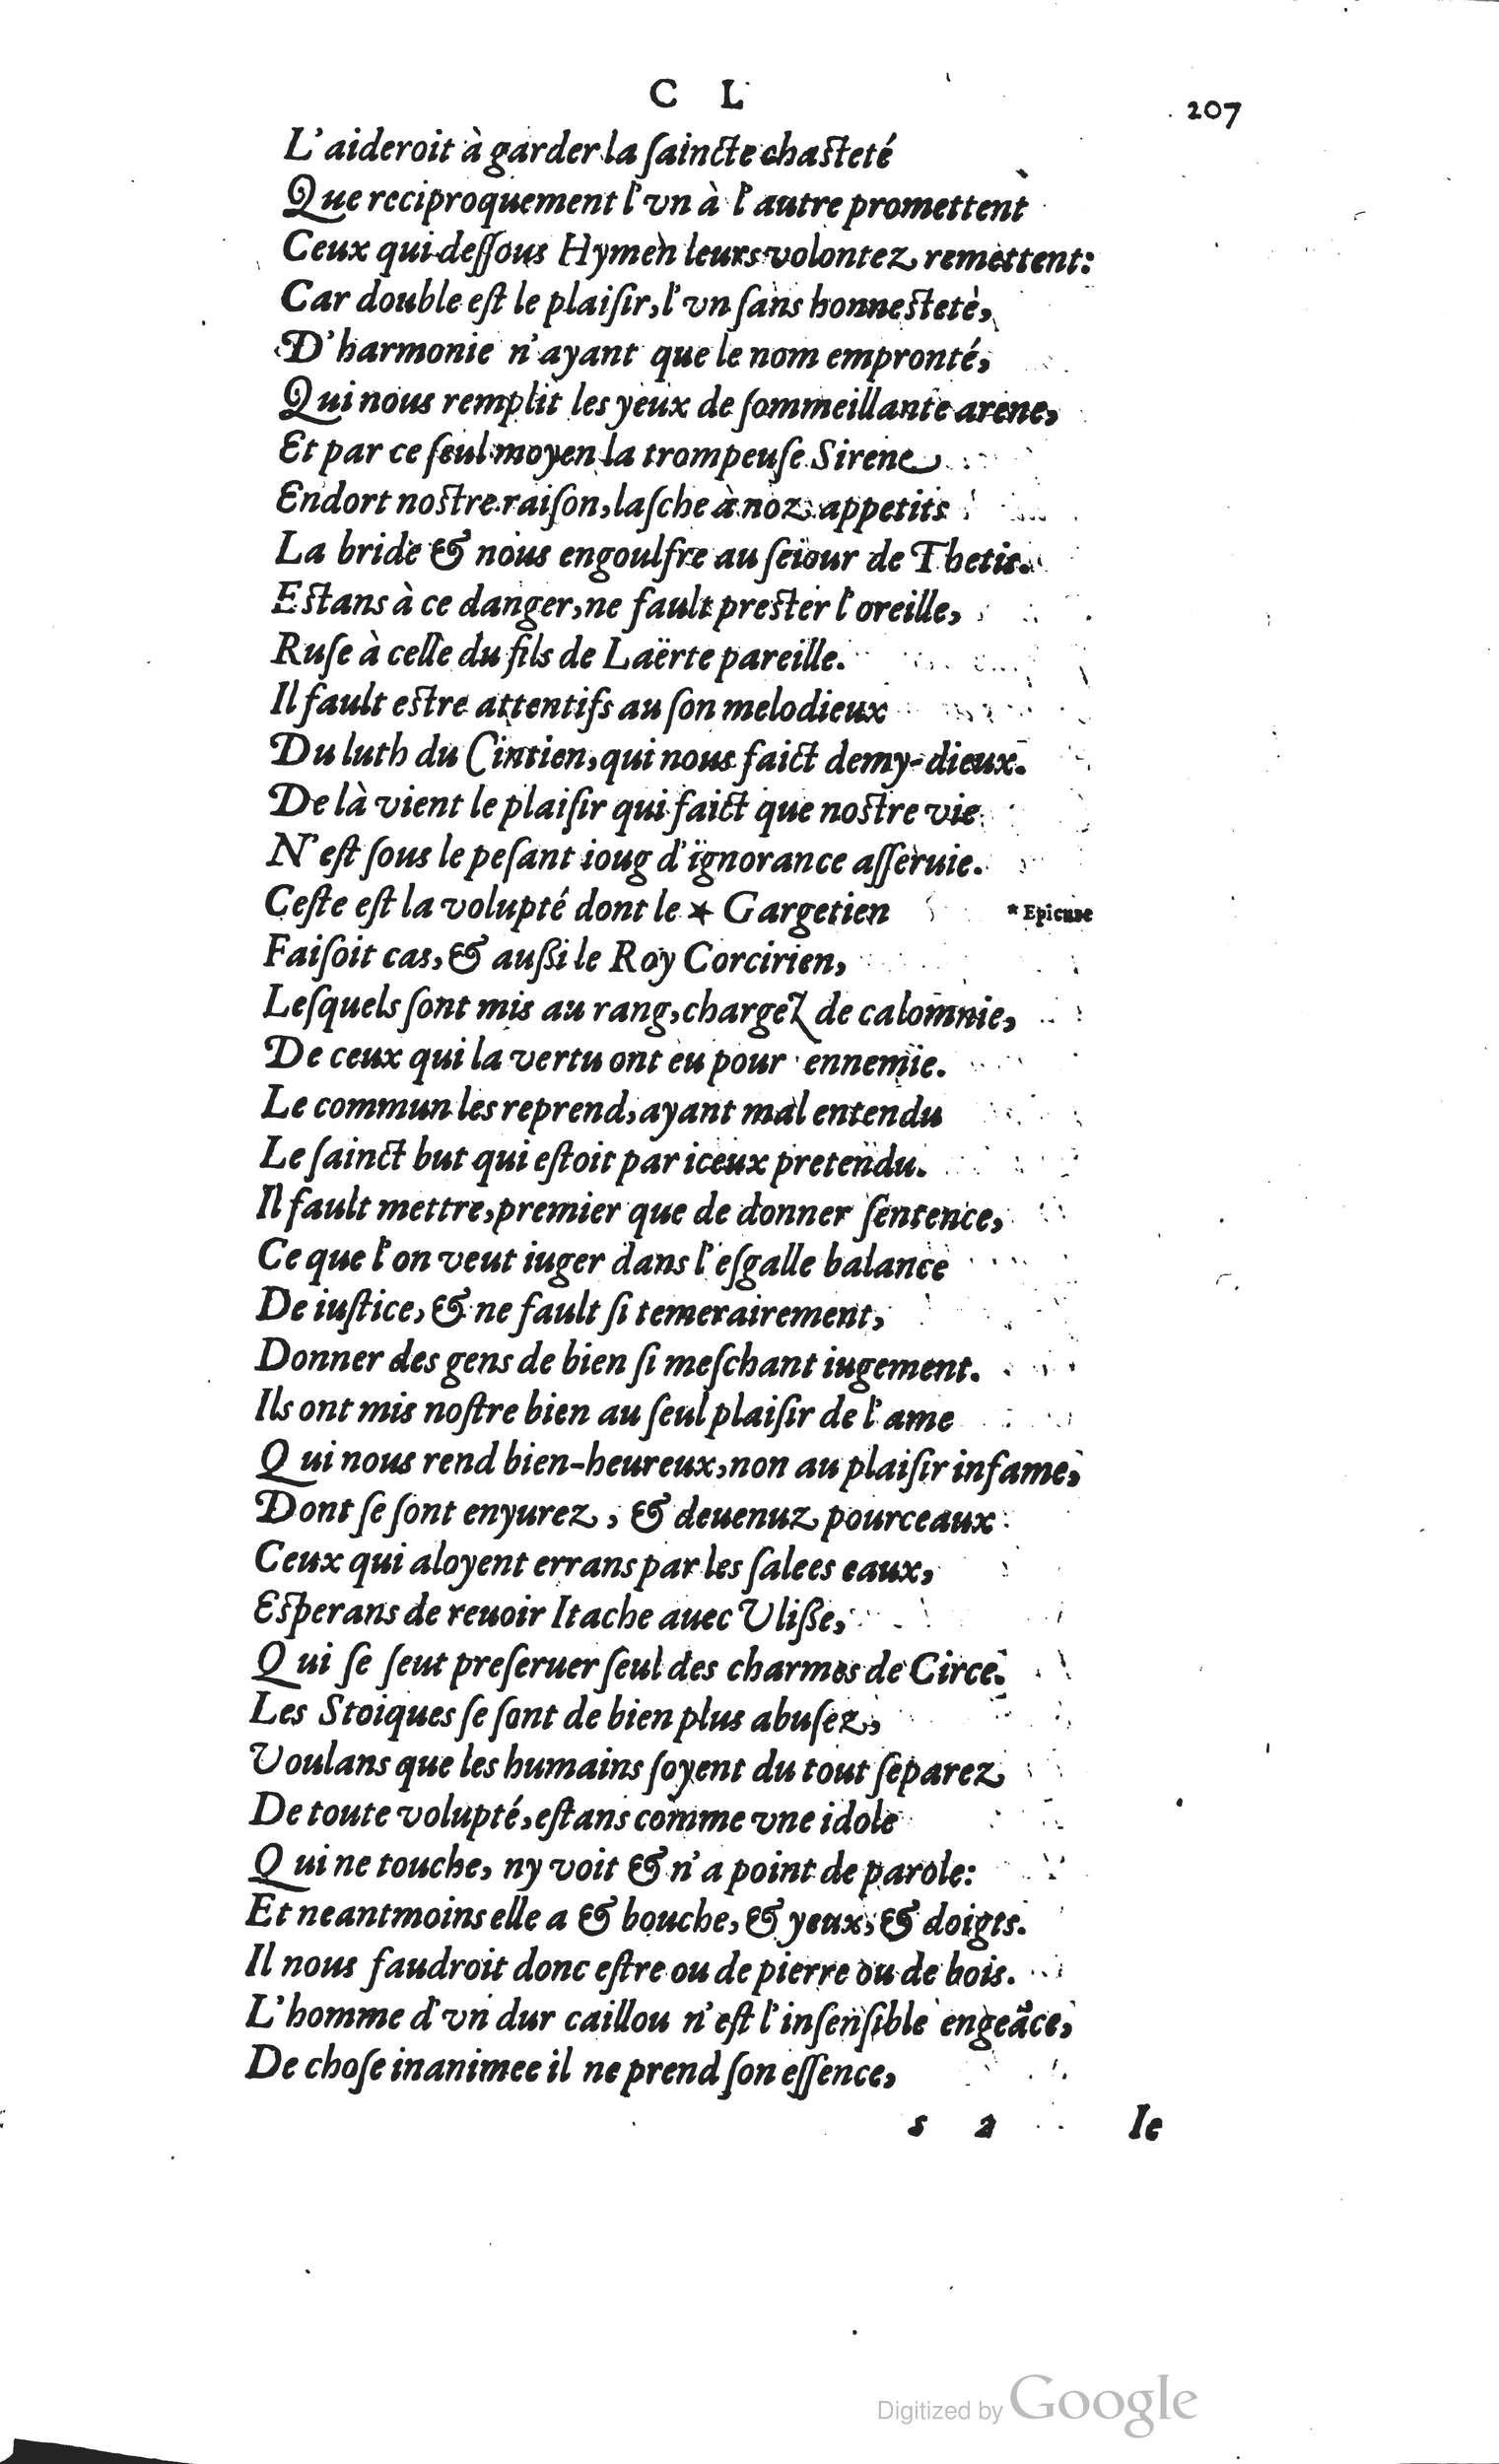 C L
207
L'aideroit à garder la ſaincte chaſteté
Que reciproquement l'vn à l'autre promettent
Ceux qui deſſous Hymen leurs volontez remettent:
Car double eſt le plaiſir, l'vn ſans honneſteté,
D'harmonie n'ayant que le nom empronté,
Qui nous remplit les yeux de ſommeillante arene,
Et par ce ſeul moyen la trompeuſe Sirene
Endort noſtre raiſon, laſche à noz appetits
La bride & nous engoulfre au ſeiour de Thetis.
Eſtans à ce danger, ne fault preſter l'oreille,
Ruſe à celle du fils de Laërte pareille.
Il fault eſtre attentifs au ſon melodieux
Du luth du Cintien, qui nous faict demy-dieux.
De là vient le plaiſir qui faict que noſtre vie
N'eſt ſous le peſant ioug d'ignorance aſſeruie.
Ceſte eſt la volupté dont le ★ Gargetien
* Epicure
Faiſoit cas, & auſſi le Roy Corcirien,
Leſquels ſont mis au rang, chargez de calomnie,
De ceux qui la vertu ont eu pour ennemie.
Le commun les reprend, ayant mal entendu
Le ſainct but qui eſtoit par iceux pretendu.
Il fault mettre, premier que de donner ſentence,
Ce que l'on veut iuger dans l'eſgalle balance
De iuſtice, & ne fault ſi temerairement,
Donner des gens de bien ſi meſchant iugement.
Ils ont mis noſtre bien au ſeul plaiſir de l'ame
Qui nous rend bien-heureux, non au plaiſir infame,
Dont ſe ſont enyurez, & deuenuz pourceaux
Ceux qui aloyent errans par les ſalees eaux,
Eſperans de reuoir Itache auec Vliſſe,
Qui ſe ſeut preſeruer ſeul des charmes de Circe.
Les Stoiques ſe ſont de bien plus abuſez,
Voulans que les humains ſoyent du tout ſeparez
De toute volupté, eſtans comme vne idole
Qui ne touche, ny voit & n'a point de parole:
Et neantmoins elle a & bouche, & yeux, & doigts.
Il nous faudroit donc eſtre ou de pierre ou de bois.
L'homme d'vn dur caillou n'eſt l'inſenſible engeãce,
De choſe inanimee il ne prend ſon eſſence,
s 2
Ie
Digitized by Google